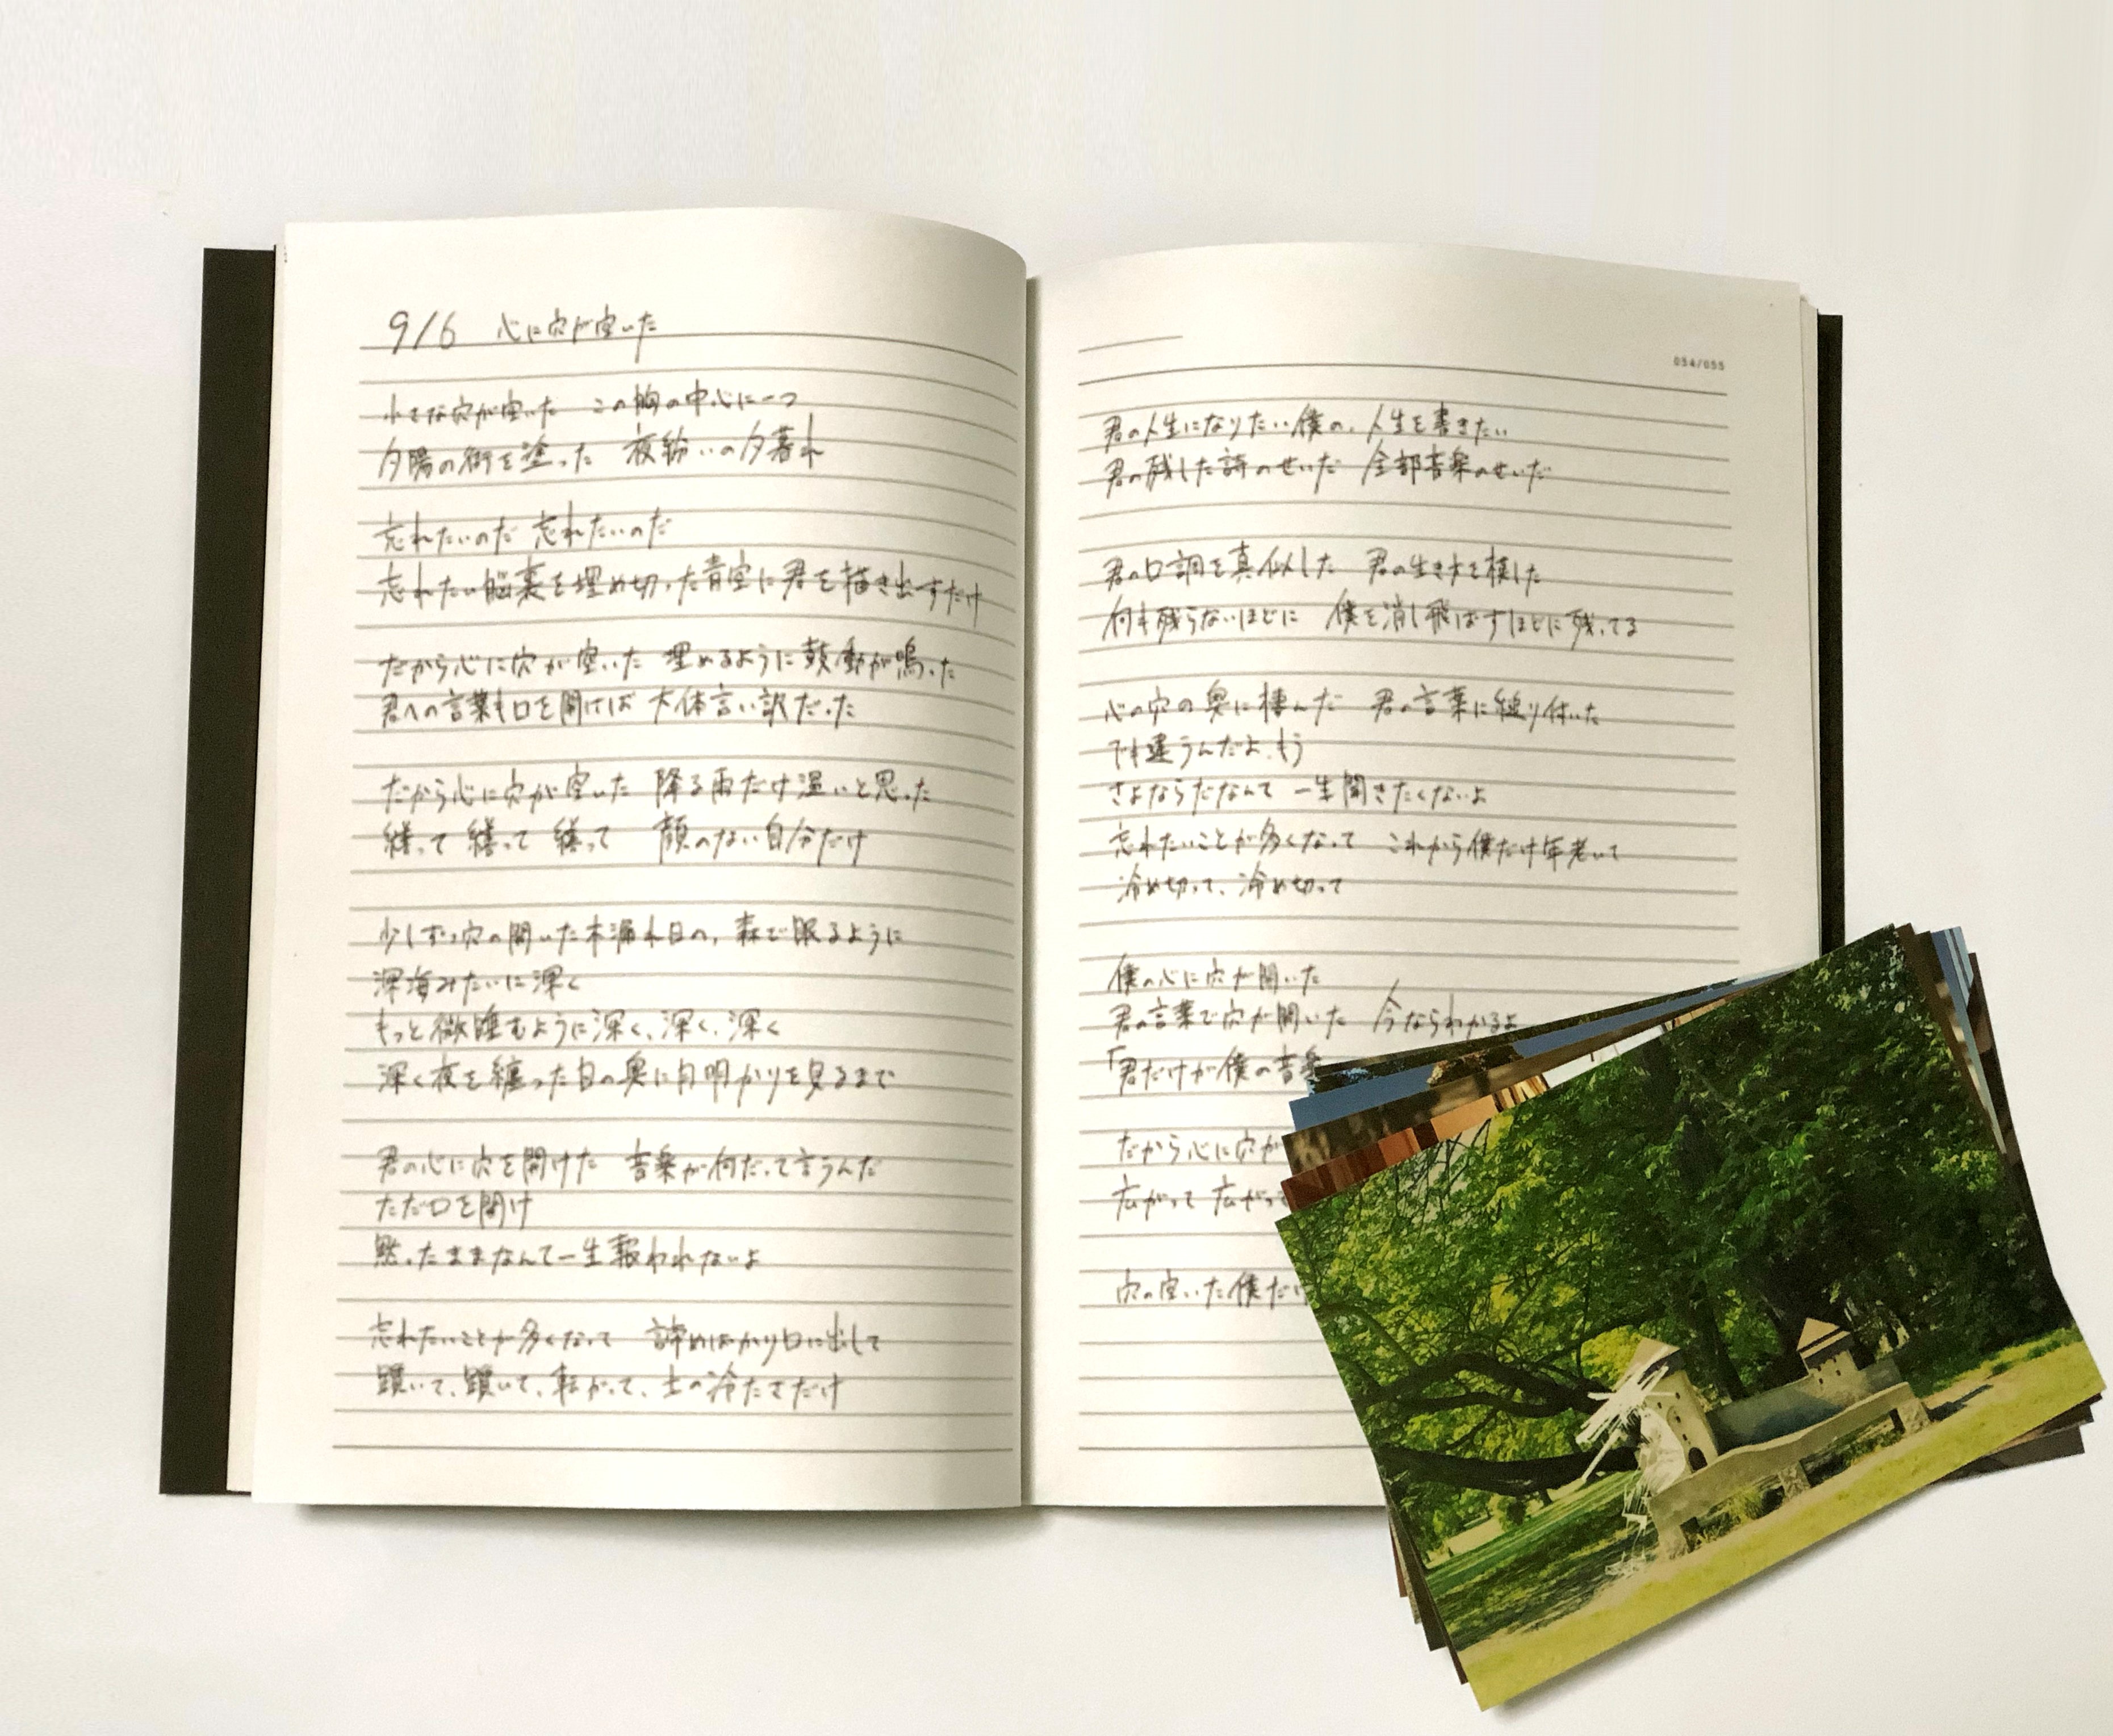 9/6 心に穴が空いた
小さな穴が空いた この胸の中心に一つ
夕陽の街を塗った 夜紛いの夕暮れ
忘れたいのだ 忘れたいのだ
忘れたい脳裏を埋め切った青空に君を描き出すだけ
だから心に穴が空いた 埋めるように鼓動が鳴った
君への言葉も口を開けば 大体言い訳だった
だから心に穴が空いた 降る雨だけ温いと思った
繕って 繕って 繕って 顔のない自分だけ
少しずつ穴の開いた木漏れ日へ、森で眠るように
深海みたいに深く
もっと微睡むように深く、深く、深く
深く夜を纏った目の奥に月明かりを見るまで
君の心に穴を開けた 音楽が何だって言うんだ
ただ口を開け
黙ったままなんて一生報われないよ
忘れたいことが多くなって 諦めばかり口に出して
躓いて、躓いて、転がって、土の冷たさだけ
054/055
君の人生になりたい僕の、人生を書きたい
君の残した詩のせいだ 全部音楽のせいだ
君の口調を真似した 君の生き方を模した
何も残らないほどに 僕を消し飛ばすほどに残ってる
心の穴の奥に棲んだ 君の言葉に縋り付いた
でも違うんだよ、もう
さよならだなんて 一生聞きたくないよ
忘れたいことが多くなって これから僕だけ年老いて
冷め切って、冷め切って
僕の心に穴が開いた
君の言葉で穴が開いた 今ならわかるよ
「君だけが僕の音楽
だから心に穴が
広がって 広がって
穴の空いた僕だけ